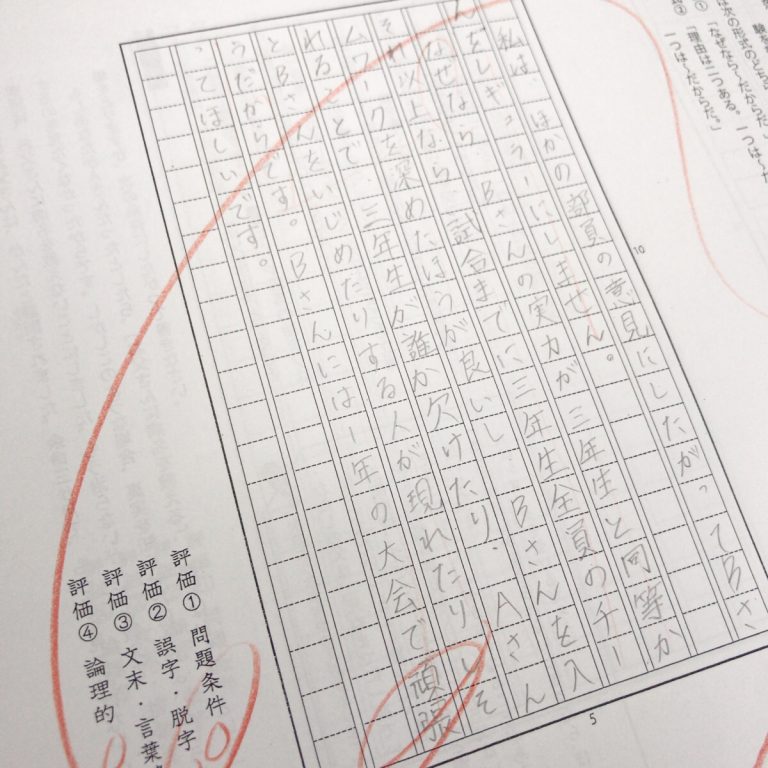 「なぜなら〜だからだ。」
「理由は二つある。一つは〜だ
一つは〜だからだ。」
私は、ほかの部員の意見にしたがってBさ
んをレギュラーにしません。
なぜなら、Bさんの実力が三年生と同等か
それ以上なら、試合までに三年生全員のチー
ムワークを深めたほうが良いし、Bさんを入
れることで、三年生が誰か欠けたり、Aさん
とBさんをいじめたりする人が現れたりしそ
うだからです。Bさんには1年の大会で頑張
ってほしいです。
10
5
評価① 問題条件
評価② 誤字・脱字
評価③ 文末・言葉
評価④ 論理的